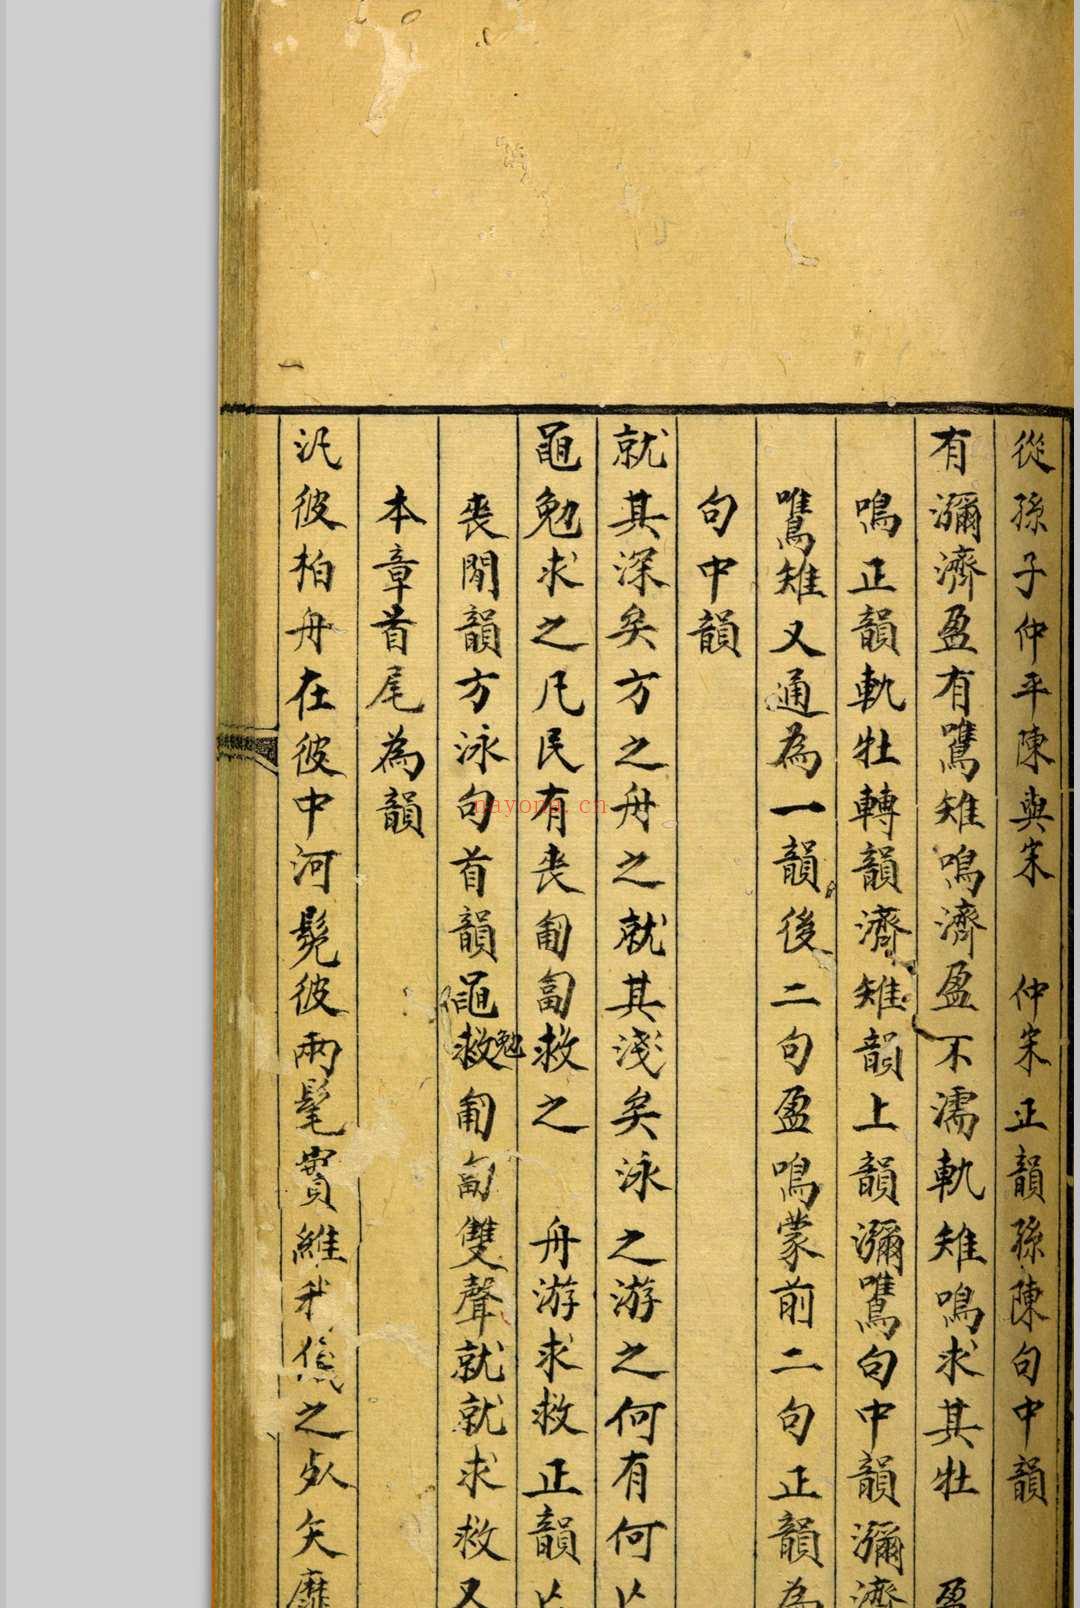 從孫子仲平陳與宋 仲宋正韻孫陳句中韻
有瀰濟盈有鷕雉鳴濟盈不濡軌雉鳴求其牡 盈
鳴正韻軌牡轉韻濟雉韻上韻瀰鷕句中韻瀰濟
鷕雉又通為一韻後二句盈鳴蒙前二句正韻為
句中韻
就其深矣方之舟之就其淺矣泳之游之何有何
黽勉求之凡民有喪匍匐救之 舟游求救正韻
喪閒韻方泳句首韻黽勉救匍匐雙聲就就求救又
本章首尾為韻
汎彼柏舟在彼中河髧彼兩髦實維我儀之死矢靡
nayong.cn